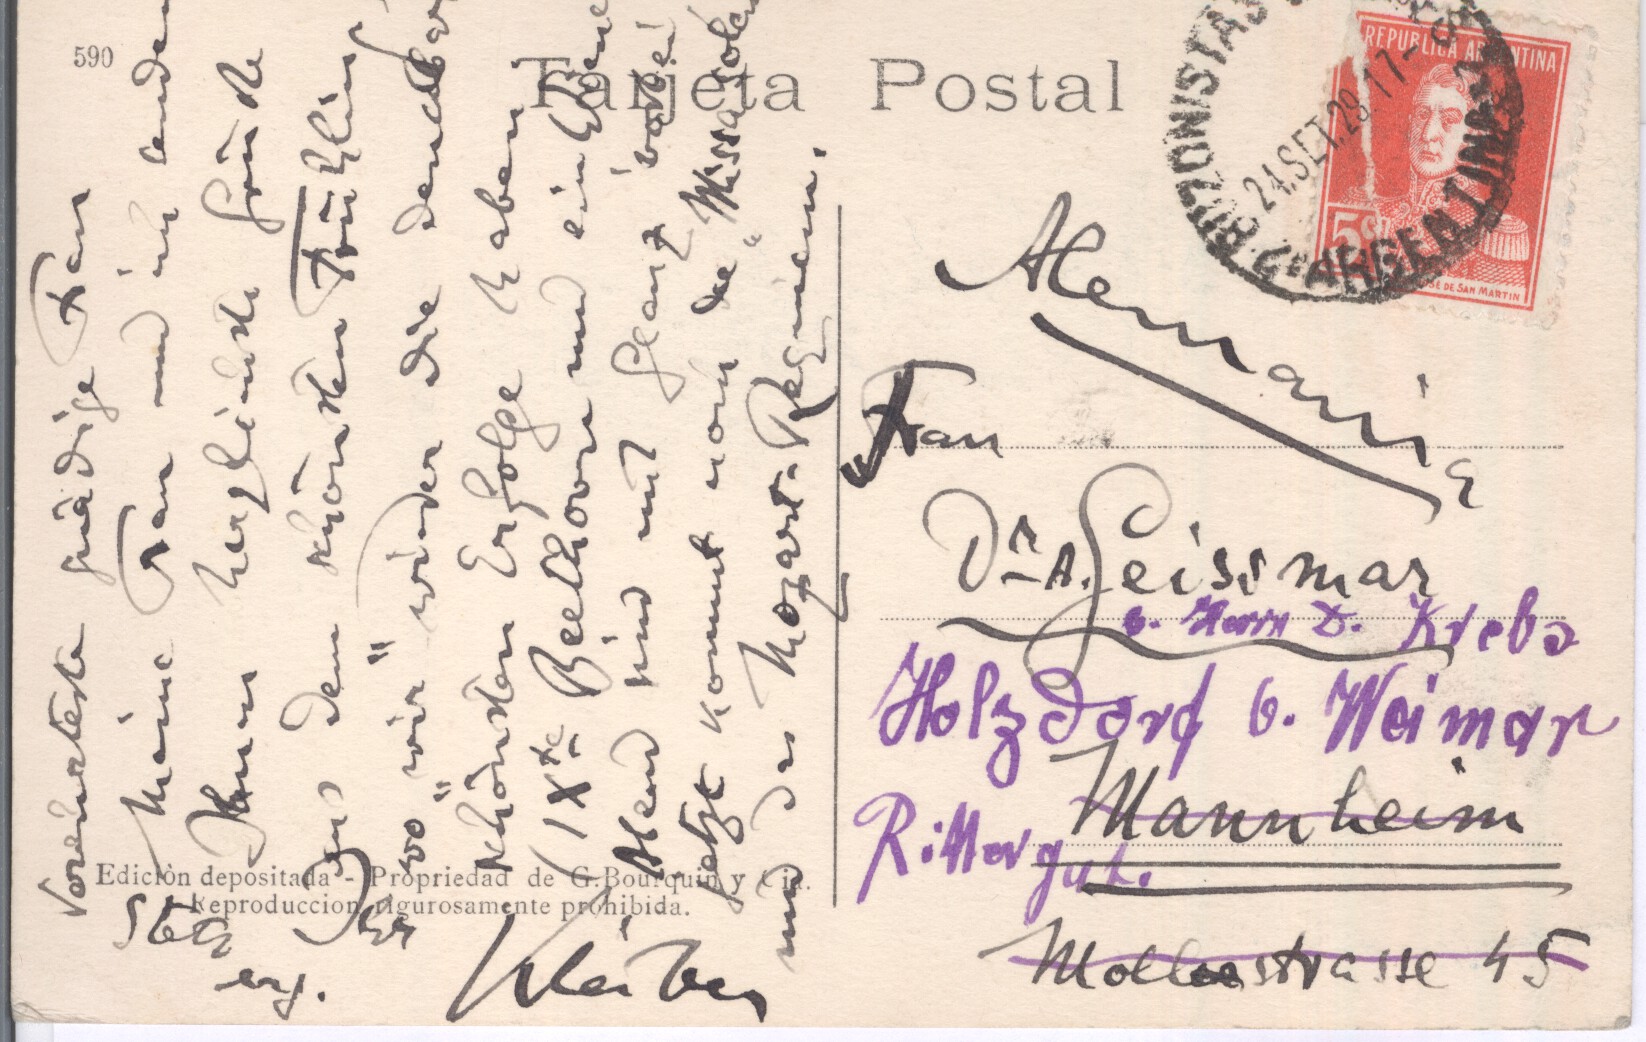 590
Tarjeta Postal
BUZONISTAS
24.SET.29.17-
ARGENTINA
REPUBLICA ARGENTINA
5
JOSE DE SAN MARTIN
Verehrteste gnädige Frau
Meine Frau und ich senden
Ihnen herzlichste Grüße
aus dem schönsten Frühling
wo wir wieder die denkbar
schönsten Erfolge haben
IXte Beethoven und ein
Abend sind mit Glanz vorbei
jetzt kommt noch die "Missa solem
und das Mozart-Requiem.
Stets
Ihr
erg.
Kleiber
Alemania
Frau
Dr. A. Geissmar
b. Herrn D. Krebs
Holzdorf b. Weimar
Rittergut.
Mannheim
strasse 45
Edición depositada - Propriedad de G. Bourquin y Cia.
Reproduccion rigurosamente prohibida.